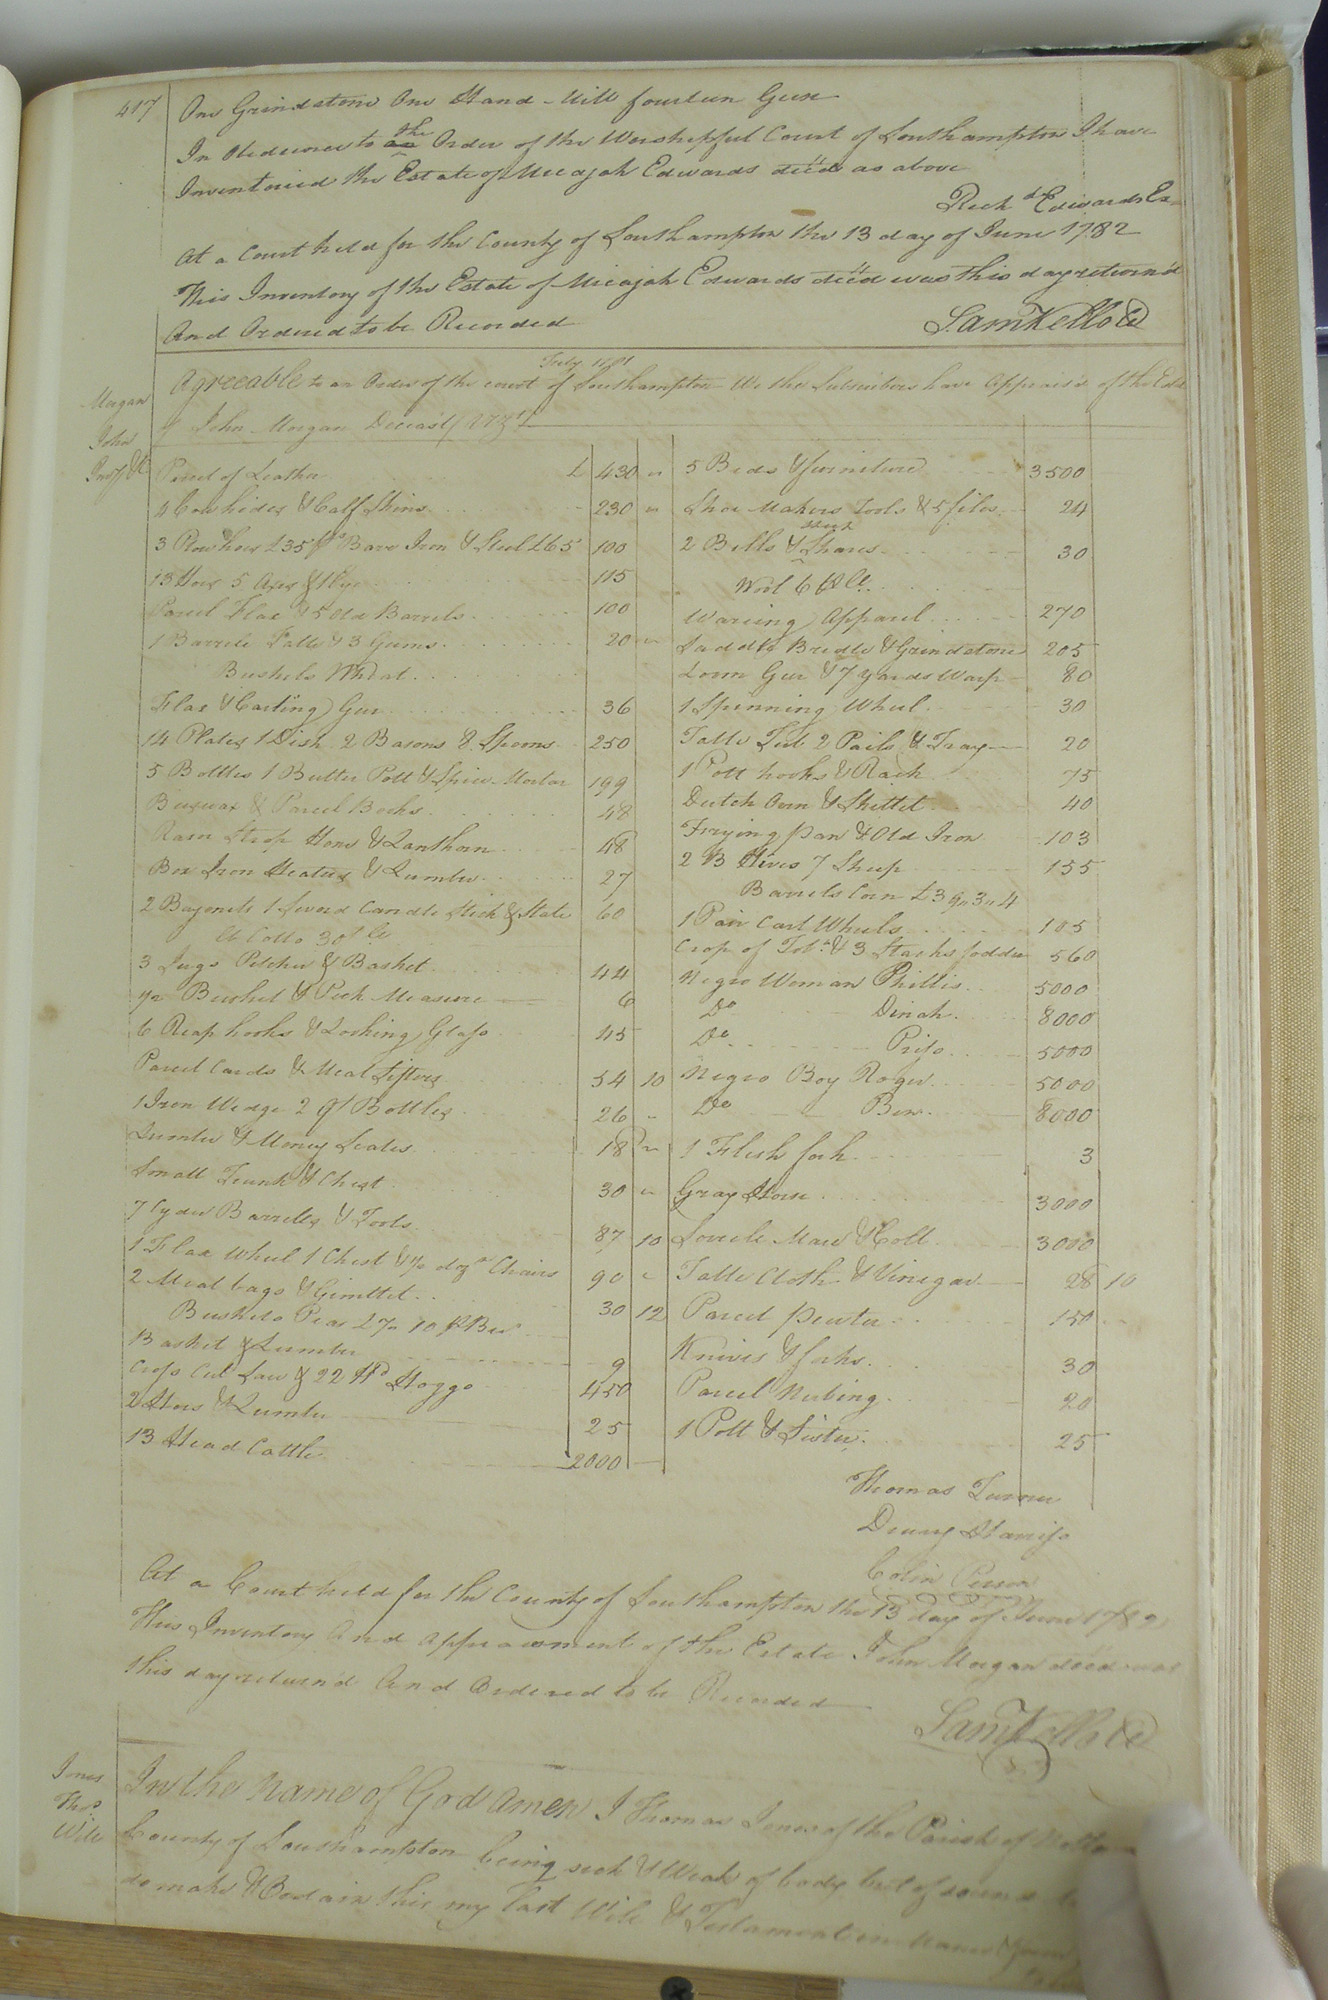 417
One Grindstone One Hand-Mill fourteen Geese
In Obedience to the Order of the Worshipful Court of Southampton I have
Inventoried the Estate of Micajah Edwards dec'd as above
Rich'd Edwards Ex
At a Court held for the County of Southampton the 13 day of June 1782
This Inventory of the Estate of Micajah Edwards dec'd was this day return'd
And Ordered to be Recorded
Sam Kello Cl
Morgan
John
Inv'y &c
Agreeable to an Order of the court of Southampton We the Subscribers have Appraised of the Est
of John Morgan Deceas'd
Parcel of Leather £ 430
4 Cowhides & Calf Skins 230
3 Plow hoes £35 Barr Iron & Steel £65 100
13 Hoes 5 Axes & 115
Parcel Flax & 5 Old Barrels 100
1 Barrele Salt & 3 Gums 20
Bushels Wheat
Flax & Carting Geer 36
14 Plates 1 Dish 2 Basons 8 Spoons 250
5 Bottles 1 Butter Pott & Spice Mortar 199
Beeswax & Parcel Books 48
Razor Strop Hone & Lanthorn 48
Box Iron Heaters & Lumber 27
2 Bayonets 1 Sword Candle Stick & Slate 60
lb Cotto 30/
3 Jugs Pitcher & Basket 44
1/2 Bushel & Peck Measure 6
6 Reap hooks & Looking Glass 45
Parcel Cards & Meal Sifters 54 10
1 Iron Wedge 2 qt Bottles 26
Lumber & Money Scales 18
Small Trunk & Chest 30
7 Cyder Barrells & Tools 87 10
1 Flax Wheel 1 Chest & 1/2 doz Chairs 90
2 Meal bags & Gimblet 30 12
Bushels Peas
Basket & Lumber 9
Cross Cut Saw & 22 Hd Hoggs 450
2 Hoes & Lumber 25
13 Head Cattle 2000
5 Beds & furniture 3500
Shoe Makers Tools & 5 files 24
2 Bells & Shares 30
Wool 6
Wareing Apparel 270
Saddle Bridle & Grindstone 205
Loom Geer & 7 yards Warp 80
1 Spinning Wheel 30
Table Tub 2 Pails & Tray 20
1 Pott hooks & Rack 75
Dutch Oven & Skillet 40
Frying pan & Old Iron 103
2 B Hives 7 Sheep 155
Barrels Corn
1 Pair Cart Wheels 105
Crop of Tob. & 3 Stacks fodder 560
Negro Woman Phillis 5000
Do Dinah 8000
Do Priss 5000
Negro Boy Roger 5000
Do Ben 8000
1 Flesh fork 3
Gray Horse 3000
Sorrele Mare & Colt 3000
Table Cloth & Vinegar 28 10
Parcel pewter 150
Knives & forks 30
Parcel 20
1 Pott & Sifter 25
Thomas Turner
Drury Harriss
Colin Person
At a Court held for the County of Southampton the 13 day of June 1782
This Inventory And Appraisement of the Estate John Morgan dec'd was
this day return'd And Ordered to be Recorded
Sam Kello Cl
Jones
Thos
Will
In the Name of God Amen I Thomas Jones of the Parish of
County of Southampton being sick & Weak of body but of sound
do make & Ordain this my last Will & Testament in